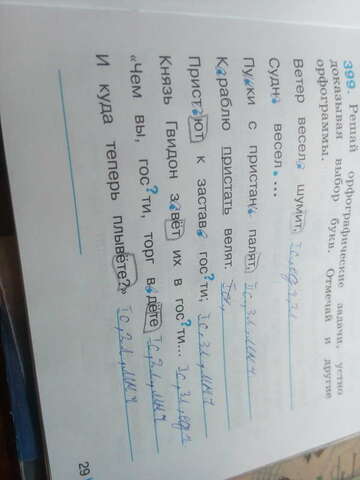 399. Решай орфографические задачи, устно
доказывая выбор букв. Отмечай и другие
орфограммы.
Ветер весел. шумит, Iс, ед.ч, 3л
Судн. весел. ...
Пу.ки с пристан. палят, IIс, 3л, мн ч
К.раблю пристать велят.
Прист.ют к застав. гос?ти; Iс, 3л, мн ч
Князь Гвидон з.вёт их в гос?ти... Iс, 3л, ед ч
«Чем вы, гос?ти, торг в.дёте Iс, 2л, мн ч
И куда теперь плывёте?» Iс, 2л, мн ч
29